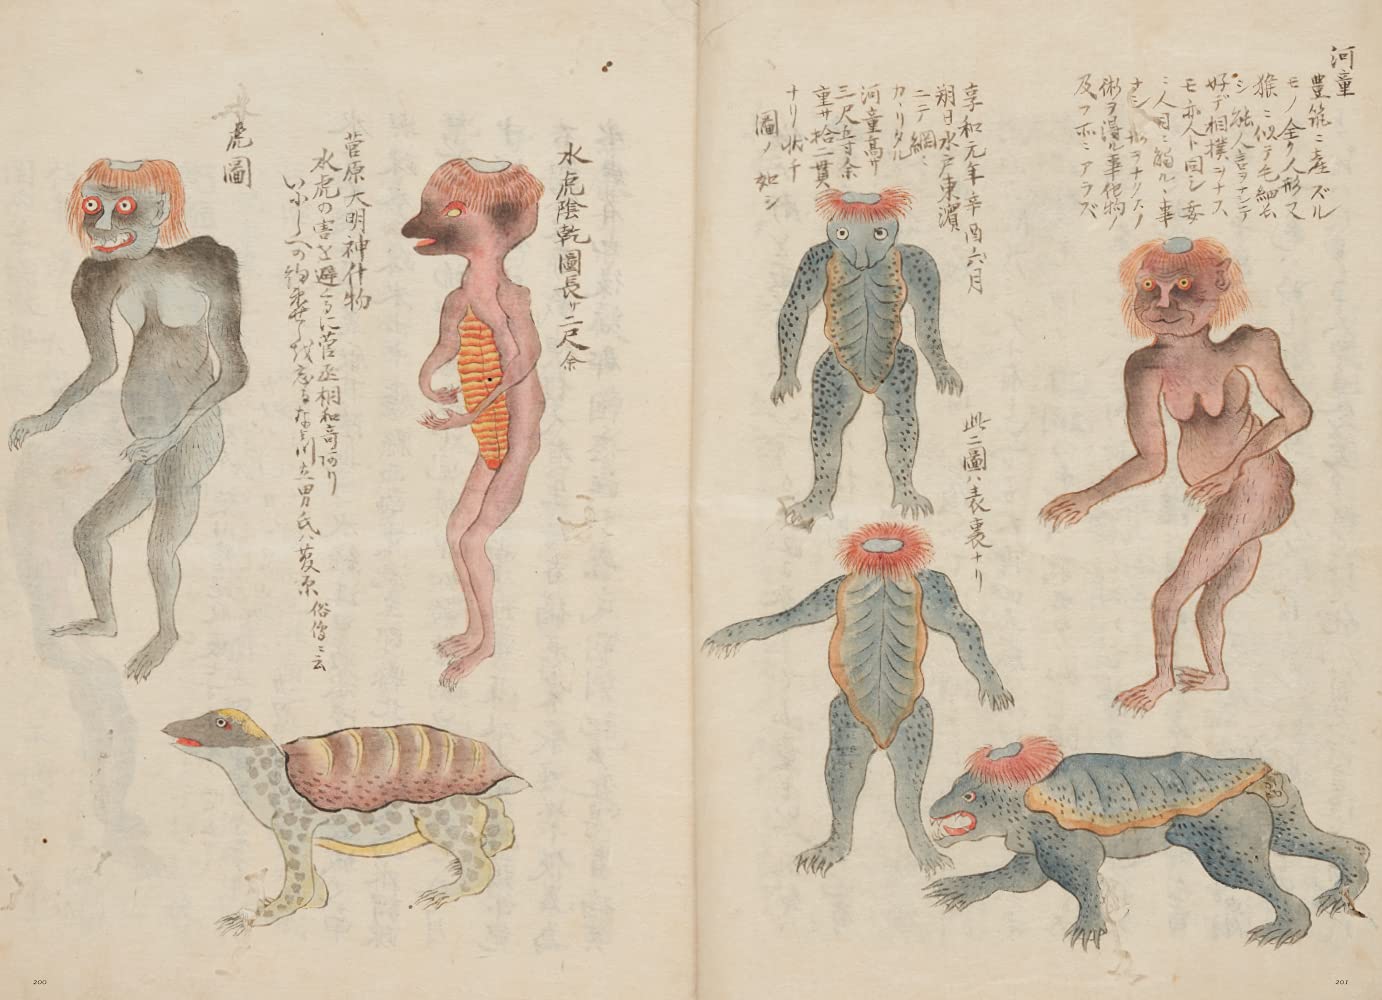 河童
豊筑ニ産ズル
モノ全ク人形又
猴ニ似テ毛細長
シ能人言ヲナシテ
好デ相撲ヲナス
モ亦人ト同シ妄
ニ人目ニ觸ルヽ事
ナシ形ヲナクスノ
術ヲ得ル事他物ノ
及フ所ニアラズ
享和元年辛酉六月
朔日水戸東濵
ニテ網ニ
カヽリタル
河童高サ
三尺五寸余
重サ拾二貫
ナリ状チ
圖ノ如シ
此二圖ハ表裏ナリ
水虎陰乾圖長サ二尺余
菅原大明神什物
水虎の害を避るに菅丞相和哥あり
いにしへの約束せしを忘るなよ川立男氏ハ菅原
俗傳ニ云
虎圖
200
201